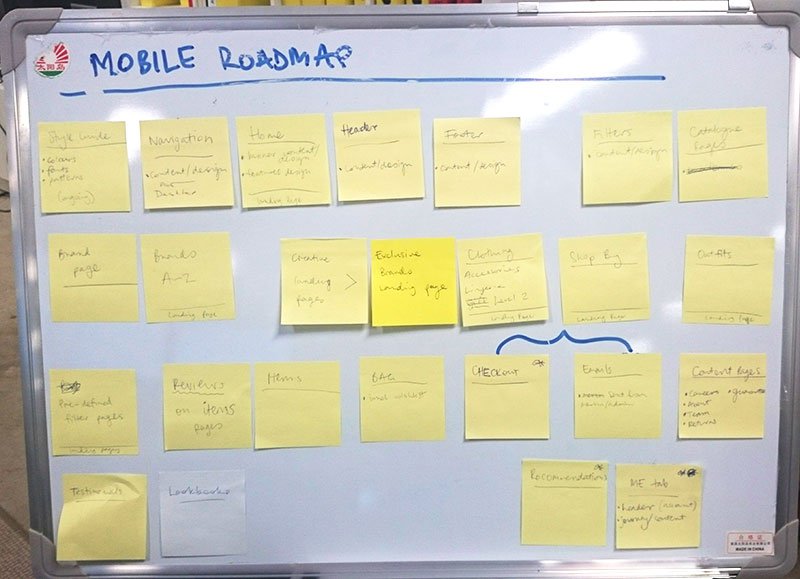 太阳岛
MOBILE ROADMAP
Style Guide
• colours
• fonts
• patterns
(ongoing)
Navigation
• content/design
Home
• banner content/
design
• featured design
Landing Page
Header
• content/design
Footer
• content/design
Filters
• content/design
Catalogue
Pages
Brand
page
Brands
A-Z
Landing Page
Creative
landing >
pages
Exclusive
Brands
Landing page
Clothing
Accessories
Lingerie
Level 2
Landing Page
Shop By
Landing Page
Outfits
Landing Page
Pre-defined
filter pages
Landing pages
Reviews
on items
pages
Items
BAG
CHECKOUT
Emails
Content Pages
• Careers
• About
• Team
• Returns
Testimonials
Lookbooks
Recommendations
ME tab
• header (account)
• journey/content
合 格 证
MADE IN CHINA